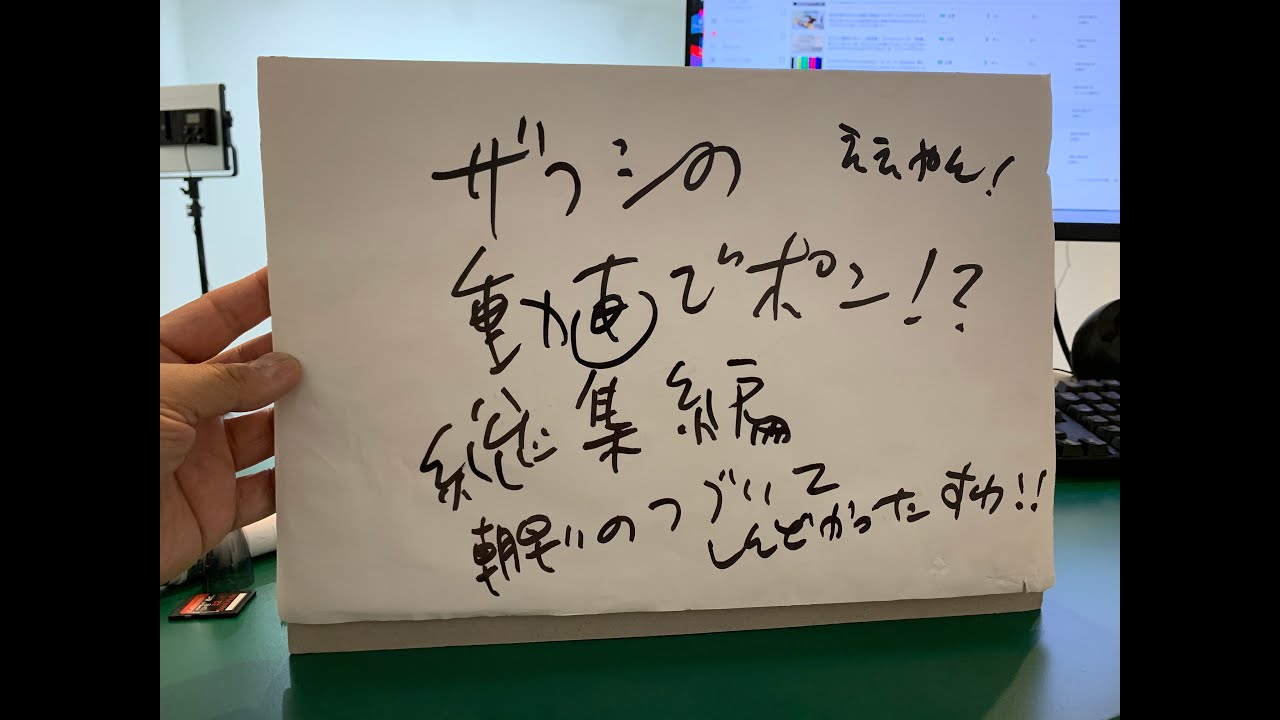 ザワシの
ええやん!
動画でポン!?
総集編
朝早いのつづいて
しんどかったすわ!!